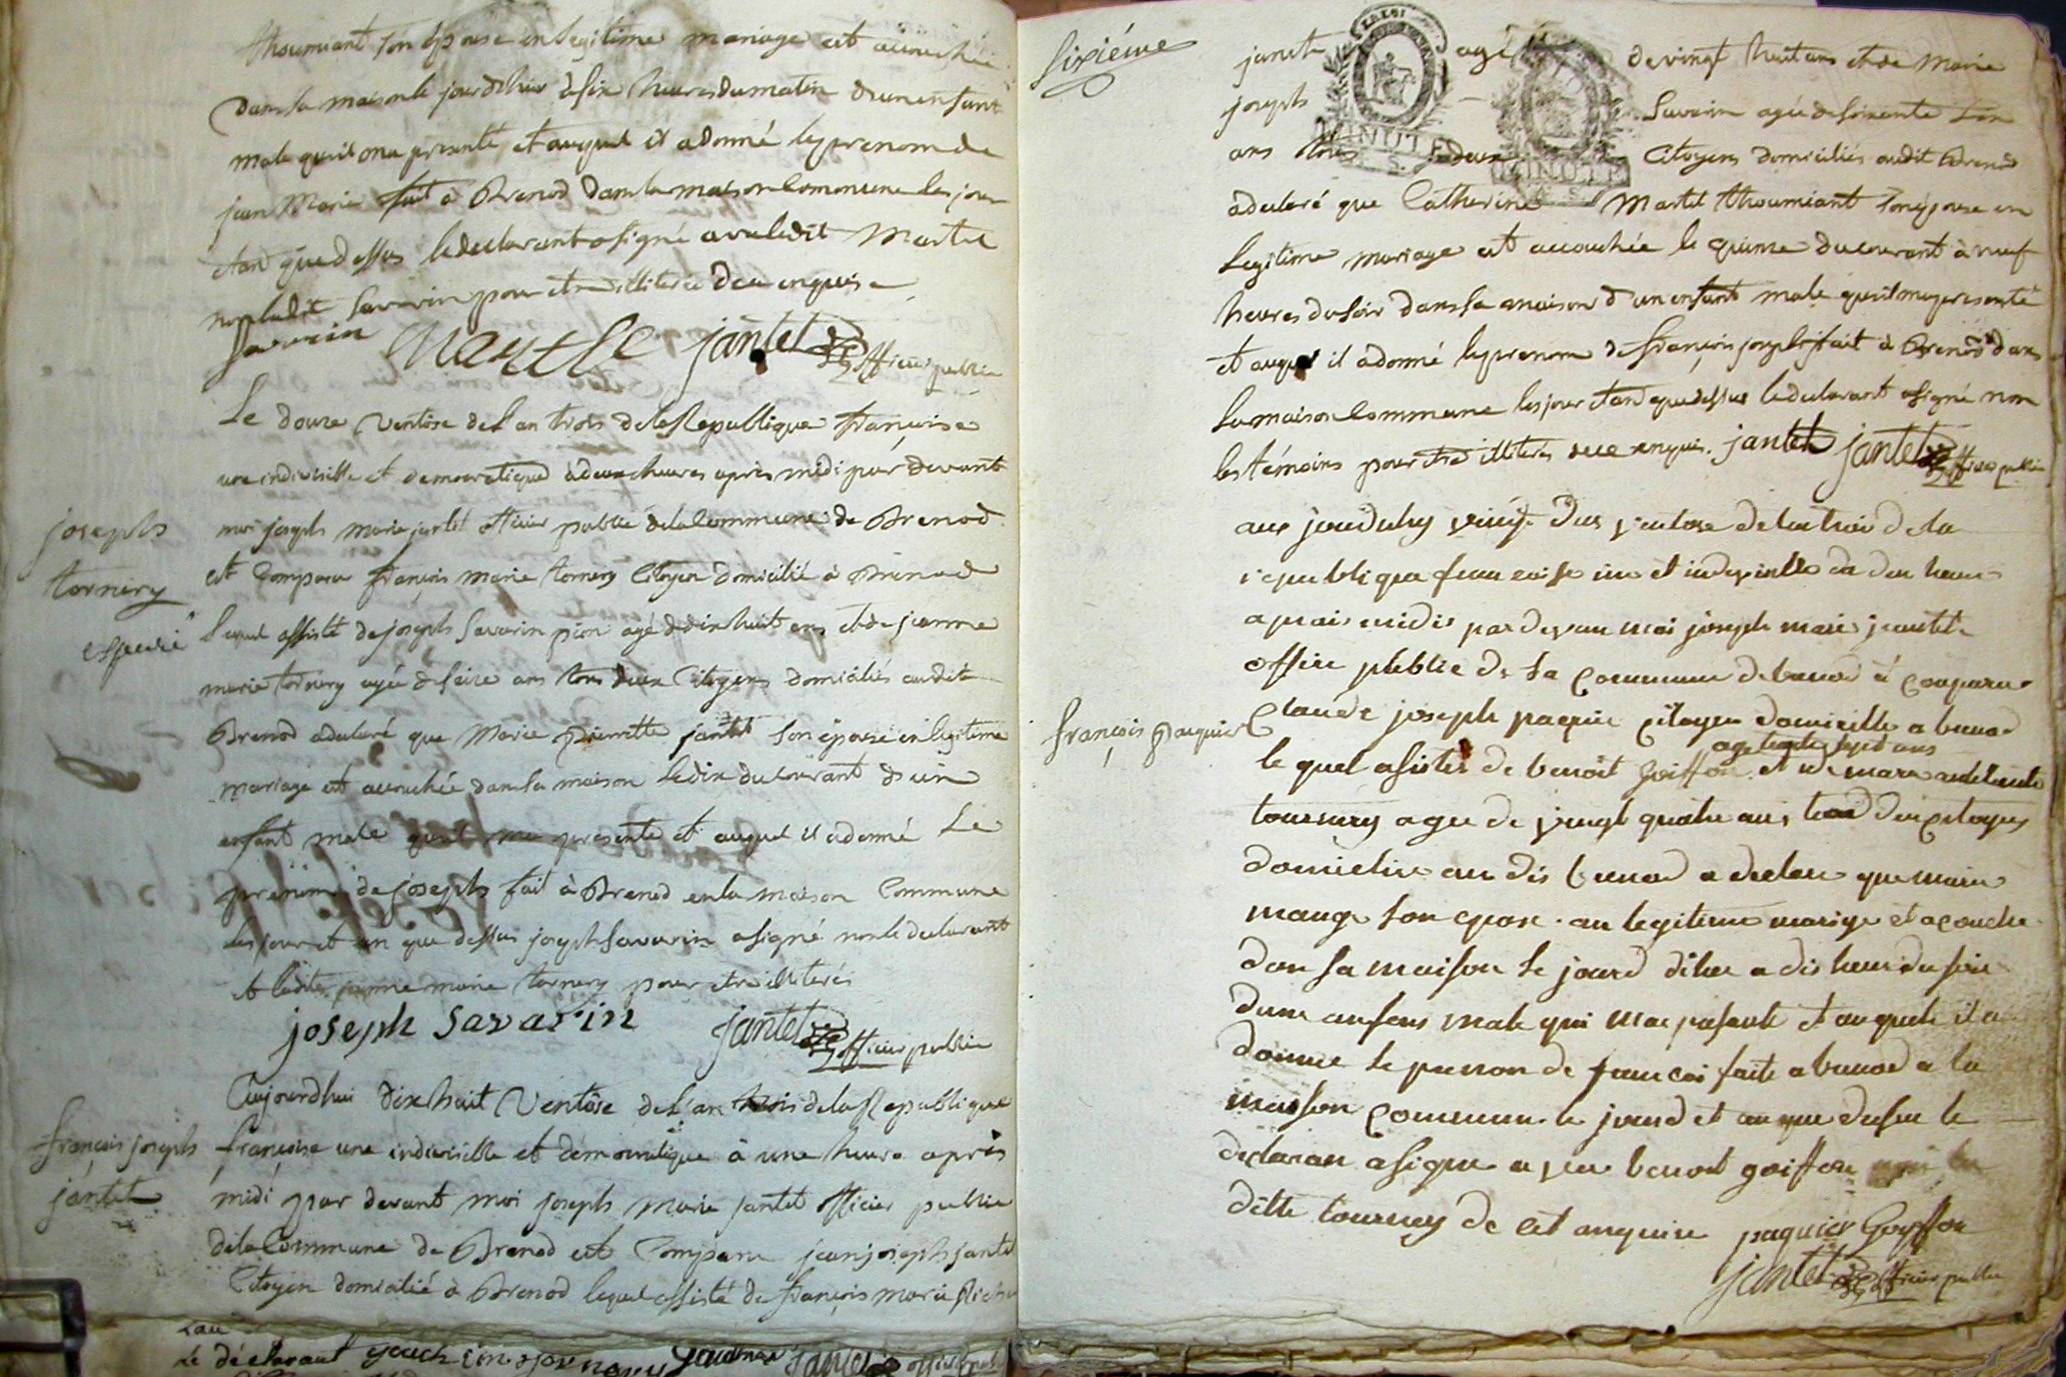 thoumiant son épouse en legitime mariage est accouchée
dans sa maison le jourdhui à six heures du matin d'un enfant
male qu'il m'a presenté et auquel il a donné le prenom de
jean Marie fait à Brenod dans la maison Commune les jour
et an que dessus le declarant a signé avec ledit Martel
non ledit Savarin pour etre illiteré de ce enquis
Savarin Martel jantet officier public
Le douze Ventôse de l'an trois de la Republique francoise
une indivisible et democratique à deux heures après midi par devant
joseph
tornery
moi joseph marie jantet officier public de la Commune de Brenod
est Comparu françois marie tornery Citoyen domicilié à Brenod
lequel assisté de joseph Savarin pion agé de dix huit ans et de jeanne
marie tornery agée de seize ans tous deux Citoyens domiciliés audit
Brenod a declaré que Marie Pierrette jantet son épouse en legitime
mariage est accouchée dans sa maison le dix du courant d'un
enfant male qu'il m'a presenté et auquel il a donné Le
prenom de joseph fait à Brenod en la maison Commune
les jour et an que dessus joseph Savarin a signé non le declarant
et ladite jeanne marie tornery pour etre illiterés
joseph savarin jantet officier public
françois joseph
jantet
Aujourdhui dix huit Ventôse de l'an trois de la Republique
francoise une indivisible et démocratique à une heure après
midi par devant moi joseph Marie jantet officier public
de la Commune de Brenod est Comparu jean joseph jantet
Citoyen domicilié à Brenod lequel assisté de françois marie
Le déclarant officier
Sixiéme
jantet agé de vingt huit ans et de Marie
joseph Savarin agée de soixante
ans tous deux Citoyens domiciliés audit Brenod
MINUTE
MINUTE
a declaré que Catherine Martel thoumiant son épouse en
legitime mariage est accouchée le quinze du courant à neuf
heures du soir dans sa maison d'un enfant male qu'il m'a presenté
et auquel il a donné le prenom de françois joseph fait à Brenod dans
la maison Commune les jour et an que dessus le declarant a signé non
les témoins pour etre illiterés de ce enquis. jantet jantet officier public
françois paquier
aux jourduhy vingt vantose de lan trois de la
republique francaise une et indivisible a deux heures
apres midis par devan moi joseph marie jantet
officie publie de la commune de brenod é comparu
Claude joseph paquie citoyen domicille a brenod
agé trente sept ans
le quel asistés de benoit goiffon et de marie
tournery agee de vingt quatre ans tous deux citoyens
domicilies au dis brenod a declare que marie
mange son epose au legitime mariage et acouche
dan sa maison le jourd dhui a dis heure du soir
dune anfans male qui mas pasante et auquele il a
donné le prenon de francoi faite a brenod a la
maison commune le jourd et an que desu le
declaran a signe avec benoit goiffon
ditte tournery de cet anquise paquier Goyffon
jantet officier public